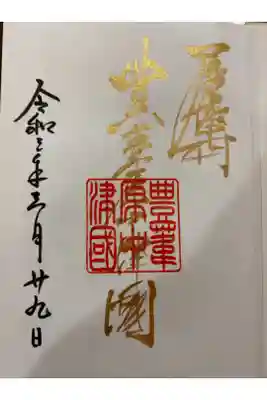 豊葦原中津國
豊葦
原中
津國
令和三年十一月廿九日